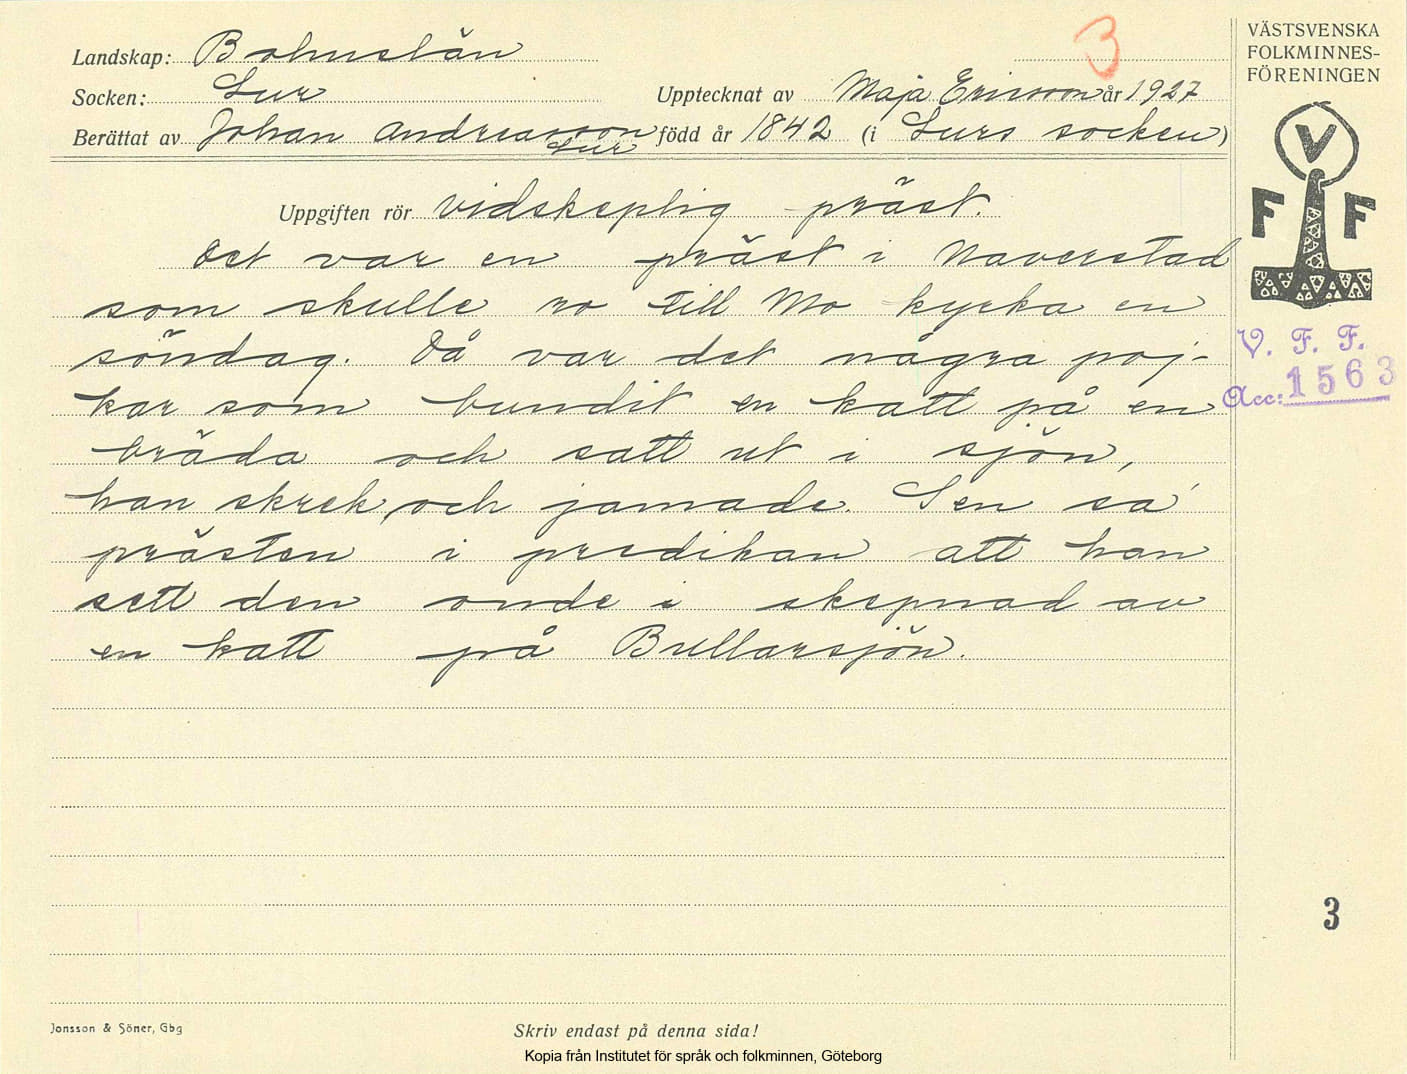 Landskap: Bohuslän
3
Socken: Lur
Upptecknat av Maja Ericsson år 1927
Berättat av Johan Andreasson Lur född år 1842 (i Lurs socken)
Uppgiften rör vidskeplig präst.
Det var en präst i Naverstad
som skulle ro till Mo kyrka en
söndag. Då var det några poj-
kar som bundit en katt på en
bräda och satt ut i sjön,
han skrek och jamade. Sen sa'
prästen i predikan att han
sett den onde i skepnad av
en katt på Bullarsjön.
VÄSTSVENSKA
FOLKMINNES-
FÖRENINGEN
V
F F
V. F. F.
Acc: 1563
3
Jonsson & Söner, Gbg
Skriv endast på denna sida!
Kopia från Institutet för språk och folkminnen, Göteborg